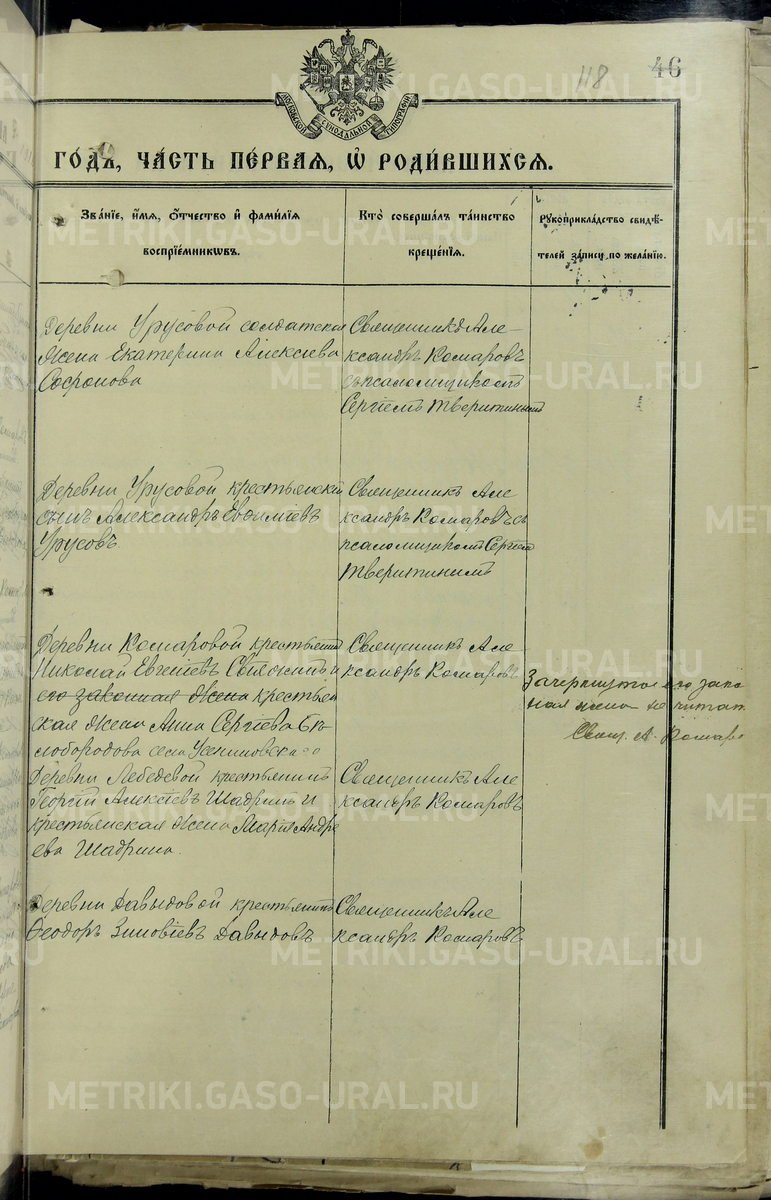 118 46
МОСКОВСКОЙ СѴНОДАЛЬНОЙ ТИПОГРАФІИ
ГО́ДЪ, ЧА́СТЬ ПЕ́РВАЯ, Ѡ҆ РОДИ́ВШИХСЯ.
Зва́нїе, и҆́мя, ѻ҆́тчество и҆ фами́лїя
воспрїе́мникѡвъ.
Кто̀ соверша́лъ та́инство
креще́нїя.
Рукоприкла́дство свидѣ́-
телей за́писи по жела́нїю.
Деревни Урусовой солдатская
жена Екатерина Алексіева
Софронова
Священникъ Але-
ксандръ Комаровъ
съ псаломщикомъ
Сергіемъ Тверитинымъ
Деревни Урусовой крестьянскій
сынъ Александръ Евѳиміевъ
Урусовъ
Священникъ Але
ксандръ Комаровъ съ
псаломщикомъ Сергіем
Тверитинымъ
Деревни Комаровой крестьянинъ
Николай Евгеніевъ и
его законная жена крестьян
ская жена Анна Сергіева Бѣ
лобородова села
Священникъ Але
ксандръ Комаровъ
Зачеркнутое его зако
ная жена не читат
Свящ. А. Комаро
Деревни Лебедевой крестьянинъ
Георгій Алексіевъ Шадринъ и
крестьянская жена Марія Андре
ева Шадрина.
Священникъ Але
ксандръ Комаровъ
Деревни Давыдовой крестьянинъ
Ѳеодоръ Зиновіевъ Давыдовъ
Священникъ Але
ксандръ Комаровъ
METRIKI.GASO-URAL.RU